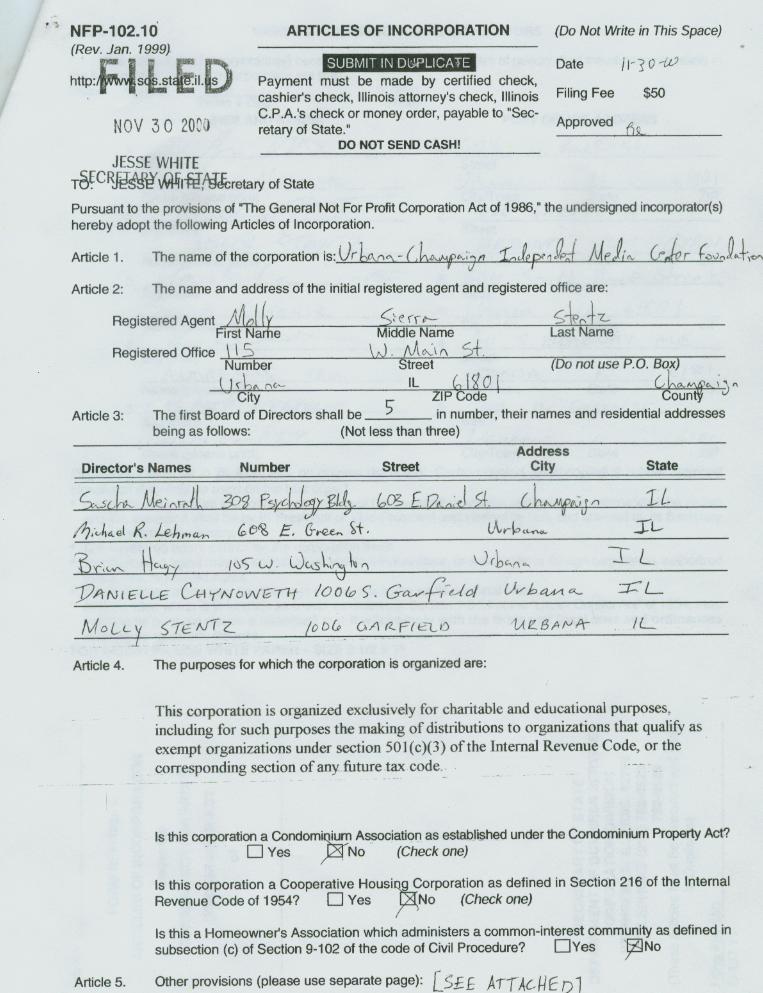 NFP-102.10 ARTICLES OF INCORPORATION (Do Not Write in This Space)
(Rev. Jan. 1999)
http://www.sos.state.il.us
FILED
NOV 30 2000
JESSE WHITE
SECRETARY OF STATE
SUBMIT IN DUPLICATE
Payment must be made by certified check,
cashier's check, Illinois attorney's check, Illinois
C.P.A.'s check or money order, payable to "Sec-
retary of State."
DO NOT SEND CASH!
Date 11-30-00
Filing Fee $50
Approved
TO: JESSE WHITE, Secretary of State
Pursuant to the provisions of "The General Not For Profit Corporation Act of 1986," the undersigned incorporator(s)
hereby adopt the following Articles of Incorporation.
Article 1. The name of the corporation is: Urbana-Champaign Independent Media Center Foundation
Article 2: The name and address of the initial registered agent and registered office are:
Registered Agent Molly Sierra Stentz
First Name Middle Name Last Name
Registered Office 115 W. Main St.
Number Street (Do not use P.O. Box)
Urbana IL 61801 Champaign
City ZIP Code County
Article 3: The first Board of Directors shall be 5 in number, their names and residential addresses
being as follows: (Not less than three)
Address
Director's Names Number Street City State
Sascha Meinrath 308 Psychology Bldg. 603 E. Daniel St. Champaign IL
Michael R. Lehman 608 E. Green St. Urbana IL
Brian Hagy 105 W. Washington Urbana IL
DANIELLE CHYNOWETH 1006 S. Garfield Urbana IL
MOLLY STENTZ 1006 GARFIELD URBANA IL
Article 4. The purposes for which the corporation is organized are:
This corporation is organized exclusively for charitable and educational purposes,
including for such purposes the making of distributions to organizations that qualify as
exempt organizations under section 501(c)(3) of the Internal Revenue Code, or the
corresponding section of any future tax code.
Is this corporation a Condominium Association as established under the Condominium Property Act?
☐ Yes ☒ No (Check one)
Is this corporation a Cooperative Housing Corporation as defined in Section 216 of the Internal
Revenue Code of 1954? ☐ Yes ☒ No (Check one)
Is this a Homeowner's Association which administers a common-interest community as defined in
subsection (c) of Section 9-102 of the code of Civil Procedure? ☐ Yes ☒ No
Article 5. Other provisions (please use separate page): [SEE ATTACHED]